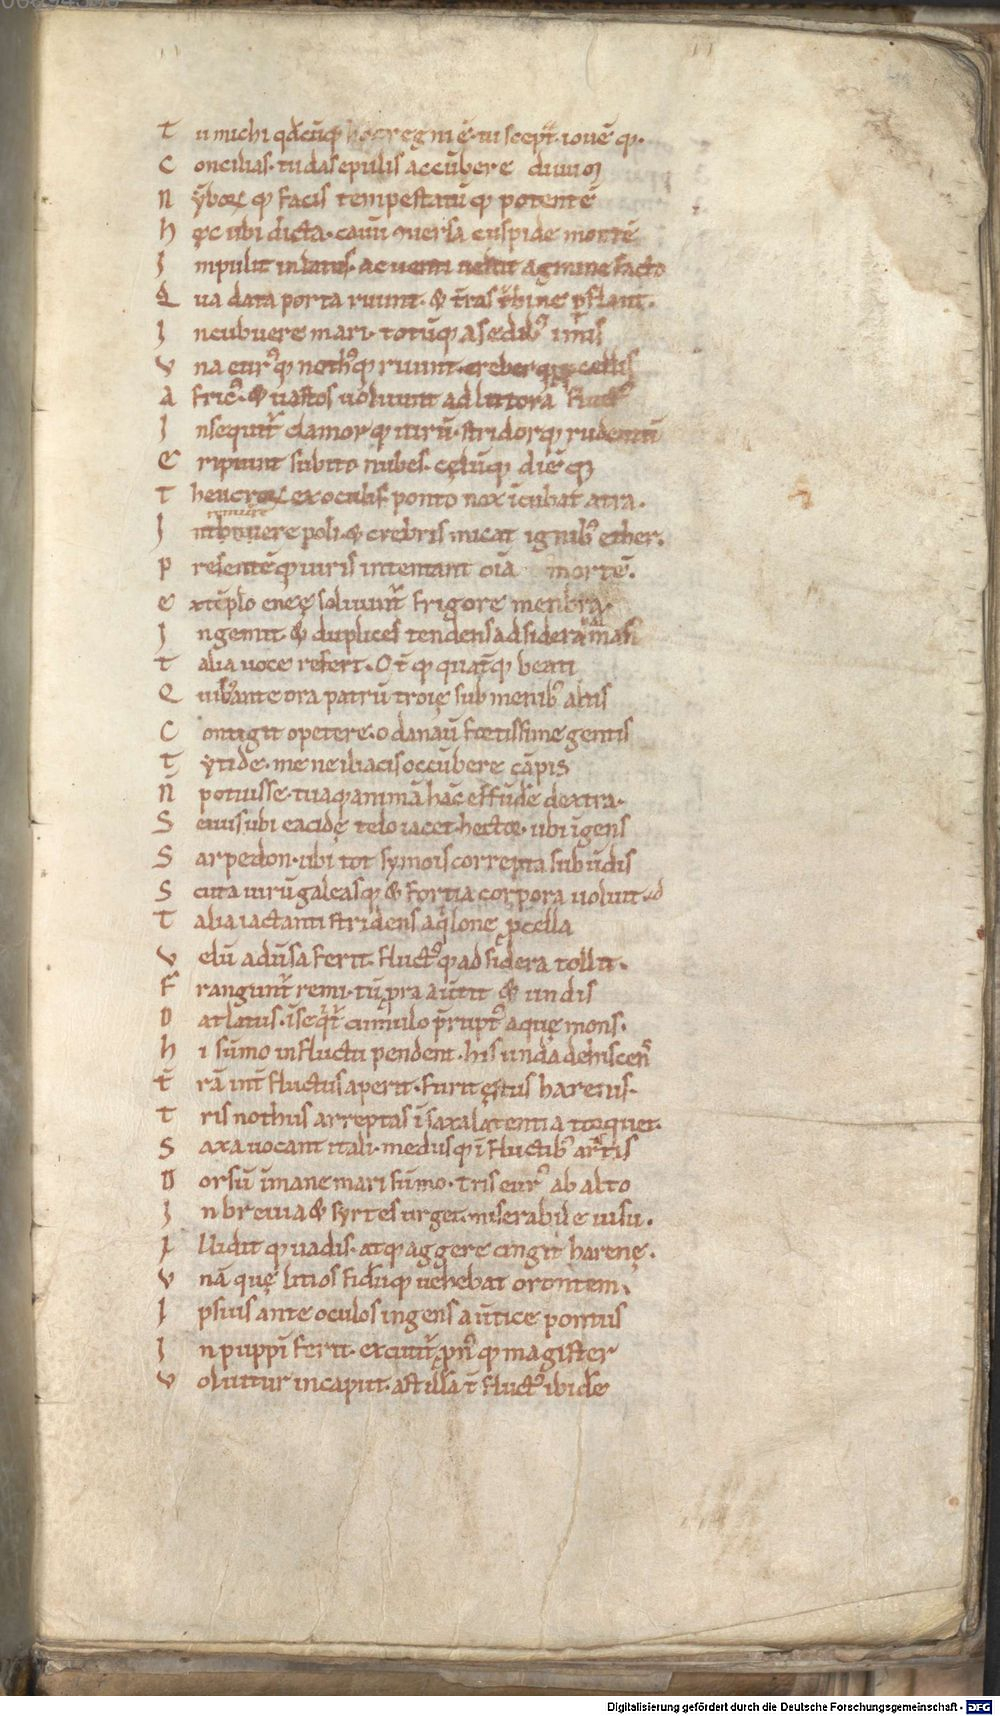 T u michi qdcūq hoc regni ē· tu sceptͣ· iouē qꝫ·
C oncilias· tu das epulis accūbere diuūm
N ẏboꝝ qꝫ facis tempestatū qꝫ potentē
h ęc ubi dicta· cauū ꝯuersa cuspide montē
I mpulit in latus· ac uenti uelut agmine facto
Q ua data porta ruunt· & t̄ras t̄bine ꝑflant·
I ncubuere mari· totūqꝫ a sedibꝰ imis
V na eurꝰqꝫ nothꝰqꝫ ruunt· creberqꝫ ꝓcellis
A fricꝰ· & uastos uoluunt ad littora fluctꝰ
I nsequit᷑ clamorqꝫ uirū· stridorqꝫ rudentū
E ripiunt subito nubes· cęlūqꝫ diēqꝫ
T heucroꝝ ex oculis· ponto nox īcubat atra·
I ntonuere poli· & crebris micat ignibꝰ ether·
P resentēqꝫ uiris intentant oīa mortē·
e xtēplo eneę soluunt᷑ frigore menbra·
I ngemit· & duplices tendens ad sidera palmas
T alia uoce refert· O t̄ qꝫ quat̄qꝫ beati
Q uibꝰ ante ora patrū troię sub menibꝰ altis
C ontigit opetere· o danaū foetissime gentis
T ẏtide· me ne iliacis occūbere cāpis
N̄ potuisse· tuaqꝫ animā hac effūde dextra·
S euus ubi eacidę telo iacet· hectoe· ubi īgens
S arpedon· ubi tot symois correpta sub ūdis
S cuta uirū galeasqꝫ & fortia corpora uoluit
T alia iactanti stridens aqͥlone ꝓcella
V elū aduersa ferit· fluctꝰqꝫ ad sidera tollit·
F rangunt᷑ remi· tū ꝓra auertit & undis
D at latus· īseqͥt᷑ cumulo p̄ruptꝰ aquę mons·
h i sūmo in fluctu pendent· his unda dehiscenˢ
T̄ rā int̄ fluctus aperit· furit ęstus harenis·
T ris nothus arreptas ī saxa latentia torquet·
S axa uocant itali· mediisqꝫ ī fluctibꝰ artis
D orsū īmane mari sūmo· tris eurꝰ ab alto
I n breuia & syrtes urget· miserabile uisu·
I lliditqꝫ uadis· atqꝫ aggere cingit harenę·
V nā quę litios fidūqꝫ uehebat orontem·
I psius ante oculos ingens a ūtice pontus
I n puppī ferit· excutit᷑ pnꝰqꝫ magister
V oluitur in caput· ast illā t̄ fluctꝰ ibidē
Digitalisierung gefördert durch die Deutsche Forschungsgemeinschaft - DFG